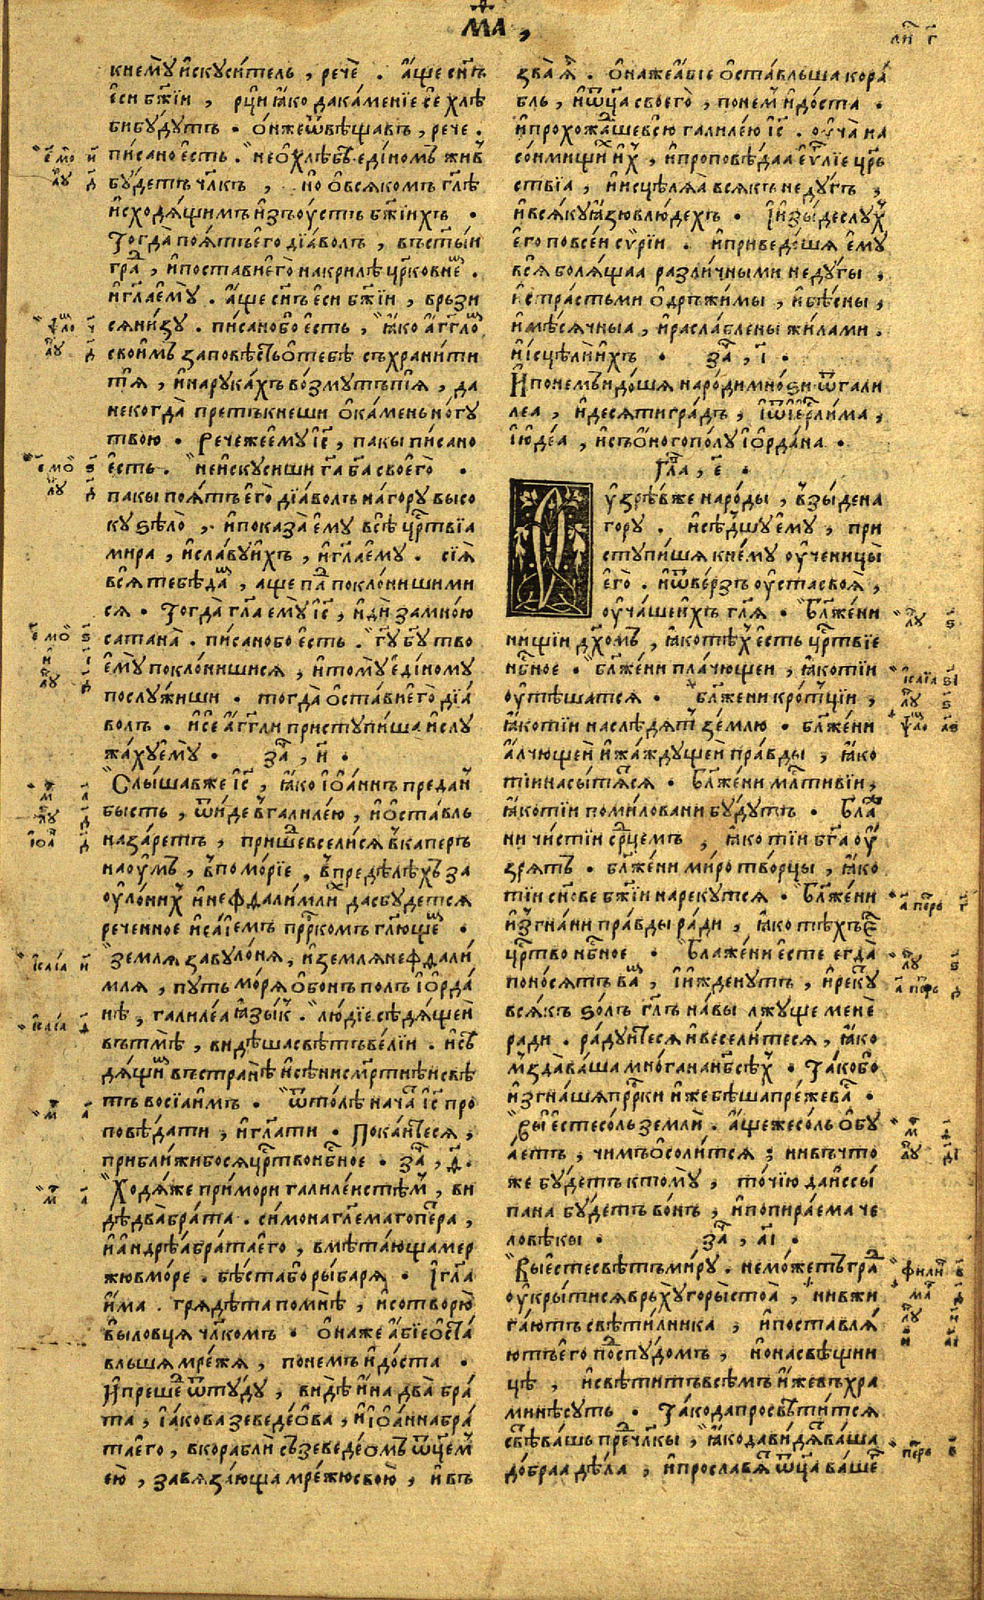 МА,
ли҃ г҃
кне́мꙋ и҆скꙋси́тель, речѐ. а҆́ще сн҃ъ
е҆си бж҃їи, рци̂ ꙗ҆́ко да ка́менїе се̂ хлѣ
би бꙋ́дꙋтъ. О҆́н же ѿвѣща́въ, рече.
писано е҆сть. не о҆ хлѣ́бѣ еди́номъ жи́въ
бꙋ́детъ чл҃къ, но о҆ всякомъ гл҃ѣ
и҆сходя́щимъ и҆зъ оу҆́стъ бж҃їихъ.
Тогда̀ поя́тъ е҆го̀ дїа́волъ, въ ст҃ы́и
гра́д, и҆ поста́ви е҆го̀ на крилѣ̀ цр҃ко́внѣм.
и҆ гл҃а е҆мꙋ̀. а҆́ще сн҃ъ е҆си бж҃їи, ве́рзи
ся ни́зꙋ. писано бо е҆сть, ꙗ҆́ко а҆́гг҃ло
свои́мъ заповѣ́сть о҆ тебѣ̀ съхрани́ти
тя̀, и҆ на рꙋка́хъ во́змꙋтъ тя̀, да
некогда̀ преткне́ши о҆ ка́мень но́гꙋ
твою. Рече же е҆мꙋ і҆с҃, пакы пи́сано
е҆́сть. не и҆скꙋси́ши гд҃а бг҃а своего̀.
пакы поя́тъ е҆го̀ дїа́волъ на горꙋ̀ высо
кꙋ ѕѣло̀, и҆ показа̀ е҆мꙋ̀ всѧ̀ цр҃твїа
ми́ра, и҆ сла́вꙋ и҆́хъ, и҆ гл҃а е҆мꙋ. сїѧ̀
всѧ̀ тебѣ̀ да́м, аще па́д поклони́ши ми
ся. Тогда̀ гл҃а е҆мꙋ̀ і҆с҃, и҆дѝ за мно́ю
сатана̀. писано бо е҆сть. гд҃ꙋ бг҃ꙋ тво
е҆мꙋ̀ поклони́шися, и҆ томꙋ̀ е҆ди́номꙋ
послꙋ́жиши. тогда̀ о҆ста́ви е҆го̀ дїа́
волъ. и҆ се̂ а҆́гг҃ли пристꙋпи́ша и҆ слꙋ
жа́хꙋ е҆мꙋ̀. за҃, и҃.
Слы́шав же і҆с҃, ꙗ҆́ко і҆ѡа́ннъ преда́н
бысть, ѿи́де в галиле́ю, и҆ о҆ста́вль
назаре́тъ, прише́д вселися в капе́рь
нао́ꙋмъ, в помо́рїе, в предѣ́лѣхъ за
оу҆ло́них и҆ нефѳали́мли. да сбꙋ́детея
рече́нное и҆са́їемъ прр҃комъ гл҃ющем.
Земля̀ завꙋло́ня, и҆ земля̀ нефѳали
мля, пꙋть мо́ря о҆б о҆нъ полъ і҆ѡрда́
нѣ, галиле́а ꙗ҆зы́к. лю́дїе сѣдя́щеи
въ тмѣ̀, ви́дѣша свѣ́тъ ве́лїи. и҆ сѣ
дя́щим въ странѣ̀ и҆ сѣ́ни см҃ртнѣи свѣ
тъ восїа̀ и҆́мъ. ѿто́лѣ нача́т і҆с҃ про
повѣ́дати, и҆ гл҃ати. Пока́итеся,
прибли́жи бо ся цр҃тво нбⷭ҇ное. за҃, ѳ҃.
Ходя́ же при мо́ри галиле́истѣм, ви
дѣ два̀ бра́та. си́мона гл҃емаго пе́тра,
и҆ а҆ндре́а бра́та е҆го̀, вмѣта́юща мре
жю в мо́ре. бѣ́ста бо ры́баря. І҆ гл҃а
и҆́ма. гряде́та по мнѣ̀, и҆ сотворю̀
вы ловця̀ чл҃комъ. О҆на же а҆бїе о҆ста́
вльша мре́жя, по не́мъ и҆до́ста.
И҆ преше́д ѿтꙋ́дꙋ, ви́дѣ и҆на̀ два̀ бра́
та, і҆а́кова зеведе́ова, и҆ і҆ѡа́нна бра́
та е҆го̀, в корабли̂ съ зеведе́омъ ѿц҃ем
е҆ю̀, завяза́юща мре́жю свою̀, и҆ въ
зва̀ ѧ҆̀. О҆на же а҆́бїе о҆ста́вльша кора́
бль, и҆ ѿц҃а своего̀, по не́м и҆до́ста.
и҆ прохожа́ше всю̀ галиле́ю і҆с҃. оу҆ча̀ на
со́нмищих и҆́х, и҆ проповѣ́даа е҆ѵⷢ҇лїе цр҃ь
ствїа, и҆ исцѣля́а всякъ недꙋ́гъ,
и҆ всякꙋ ꙗ҆́зю в лю́дехъ. І҆ и҆зы́де слꙋ́х
е҆го по все́и сѵ́рїи. и҆ приведо́шя е҆мꙋ̀
всѧ̀ боля́щаа разли́чными недꙋ́гы,
и҆ стра́стьми о҆дрьжи́мы, и҆ бѣ́сны,
и҆ мѣ́сячныа, и҆ разсла́блены жи́лами.
и҆ исцѣлѝ и҆́хъ. за҃, і҃.
И҆ по не́мъ и҆до́шя наро́ди мно́ѕи ѿ гали
ле́а, и҆ десятигра́дъ, і҆ ѿ і҆ер҃лима,
і҆ ю҆де́а, и҆ съ о҆́ного по́лꙋ і҆ѡрда́на.
Гл҃а, е҃.
Оу҆зрѣ́в же наро́ды, взы́де на
горꙋ. и҆ сѣ́дшꙋ е҆мꙋ, при
стꙋпи́шя к не́мꙋ оу҆ченицы̀
е҆го̀. и҆ ѿве́рзъ оу҆ста̀ своѧ̀,
оу҆ча́ше и҆́хъ гл҃я. Блаже́ни
ни́щїи дх҃омъ, ꙗ҆́ко тѣ́х е҆сть цр҃твїе
нбⷭ҇ное. блаже́ни пла́чющеи, ꙗ҆́ко тїи
оу҆тѣ́шатся. блаже́ни кро́тцїи,
ꙗ҆́ко тїи наслѣ́дят зе́млю. блаже́ни
а҆́лчющеи и҆ жа́ждꙋщеи пра́вды, ꙗ҆́ко
тїи насы́тятся. Блаже́ни млⷭ҇тивїи,
ꙗ҆́ко тїи поми́ловани бꙋ́дꙋтъ. Бла́же
ни чи́стїи срⷣцемъ, ꙗ҆́ко тїи бг҃а оу҆́
зрятъ. блаже́ни миротво́рцы, ꙗ҆́ко
тїи сн҃ове бж҃їи нарекꙋ́тся. Блаже́ни
и҆згна́ни пра́вды ра́ди, ꙗ҆́ко тѣ́хъ е҆сть
цр҃тво нбⷭ҇ное. Блаже́ни е҆сте е҆гда̀
поно́сятъ вам, і҆ и҆жденꙋтъ, и҆ рекꙋ́т
вся́къ ѕо́лъ гл҃ъ на вы̀ лжꙋще менѐ
ради. ра́дꙋитеся и҆ весели́теся, ꙗ҆́ко
мзда̀ ва́ша мно́га на нб҃сѣ́х. Та́ко бо
и҆згна́шя прⷪ҇ро́кы и҆же бѣ́ша пре́же ва́с.
Вы̀ е҆сте со́ль земли̂. а҆́ще же со́ль о҆бꙋ
а́етъ, чимъ о҆соли́тся; ни въ что́
же бꙋ́детъ к томꙋ̀, то́чїю да и҆ссы́
пана бꙋ́детъ во́нъ, и҆ попира́ема че
ловѣ́кы. за҃, аі҃.
Вы̀ е҆сте свѣ́тъ ми́рꙋ. не мо́жетъ гра́д
оу҆кры́тися врьхꙋ̀ горы̀ стоа̀, ни вжи
га́ютъ свѣти́лника, и҆ поставля́
ютъ е҆го по́д спꙋ́домъ, но на свѣ́щни
цѣ, и҆ свѣ́титъ всѣ́мъ и҆же въ хра́
минѣ сꙋть. Та́ко да просвѣти́тся
свѣ́тъ ва́шь пред чл҃кы, ꙗ҆́ко да ви́дят ва́ша
до́браа дѣ́ла, и҆ просла́вят ѿц҃а ва́шег